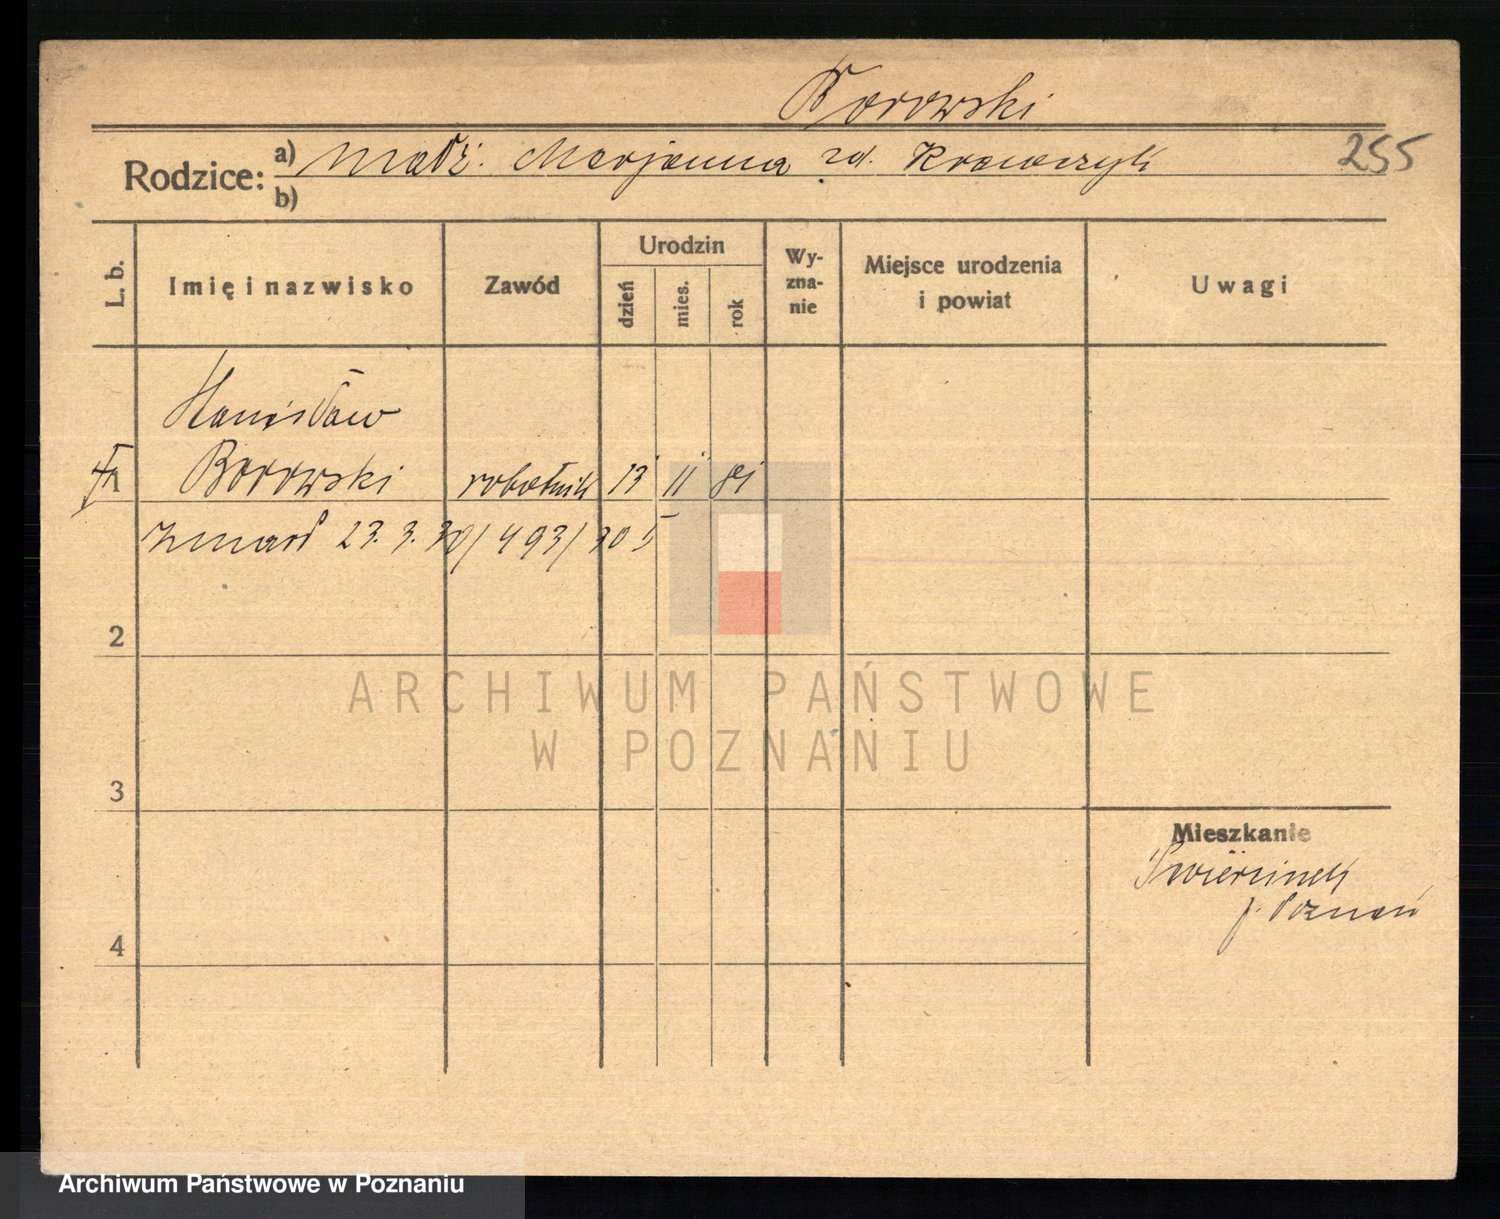 Borowski
Rodzice: a) Małż. Marjanna zd. Krawczyk 255
b)
L. b. Imię i nazwisko Zawód Urodzin dzień mies. rok Wy-zna-nie Miejsce urodzenia i powiat Uwagi
Stanisław
1 Borowski robotnik 13 11 81
zmarł 23. 3. 30/493/30 5
2
ARCHIWUM PAŃSTWOWE
W POZNANIU
3
Mieszkanie
Świerzinek
p. Poznań
4
Archiwum Państwowe w Poznaniu